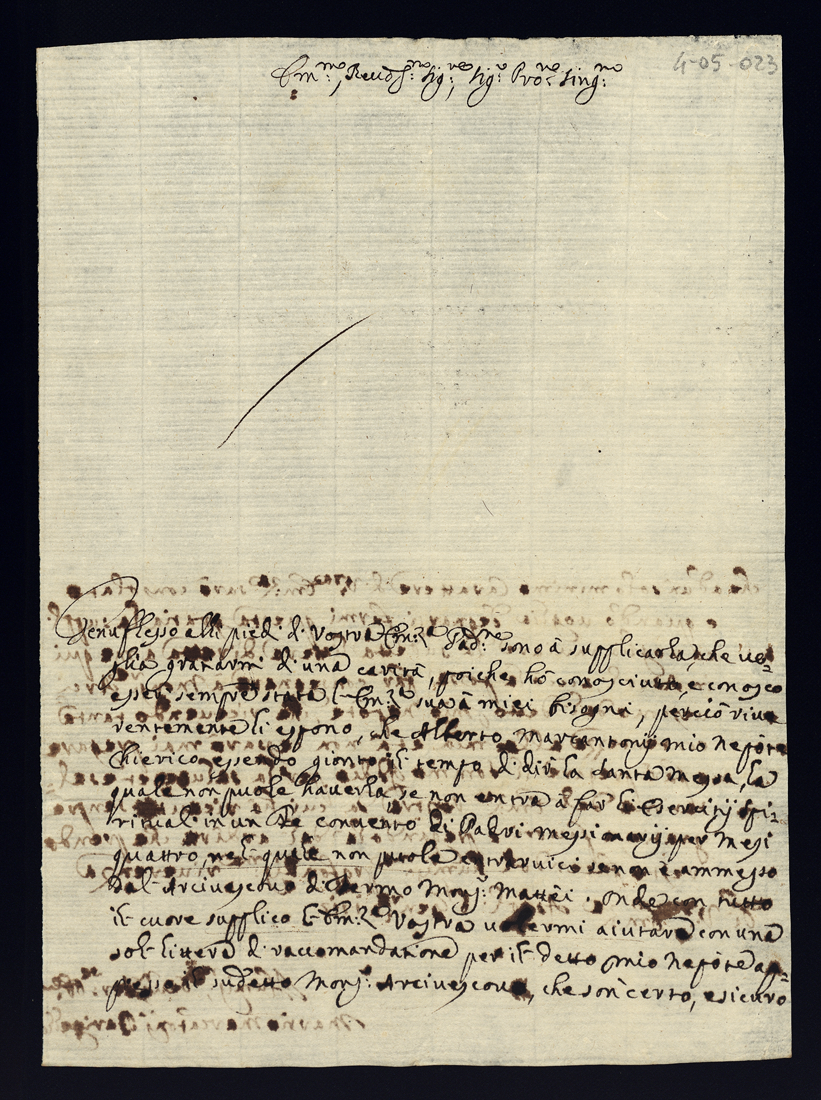 4-05-023
Em:mo, Reud:mo Sig:re, Sig:r Pro:ne Sing:mo
Genuflesso alli piedi di Vostra Em:za Pad:ne sono à supplicarla, che uo=
glia gratiarmi di una carità, poiche hò conosciuto, e conosco
esser sempre stata l'Em:za sua à miei bisogni, perciò riue
rentemente li espono, che Alberto Marcantonij mio nepote
Chierico essendo gionto il tempo di dir la santa Messa, la
quale non puole hauerla se non entra à far li Esercitij spi=
rituali in un Conuento di Padri Messionarij per mesi
quattro, nel quale non puole entrarvici se non è ammesso
dal Arciuescouo di Fermo Mons:r Mattei. onde con tutto
il cuore supplico l'Em:za Vostra uolermi aiutare con una
sol littera di raccomandatione per il detto mio nepote ap=
presso il sudetto Mons:r Arciuescouo, che son certo, e sicuro